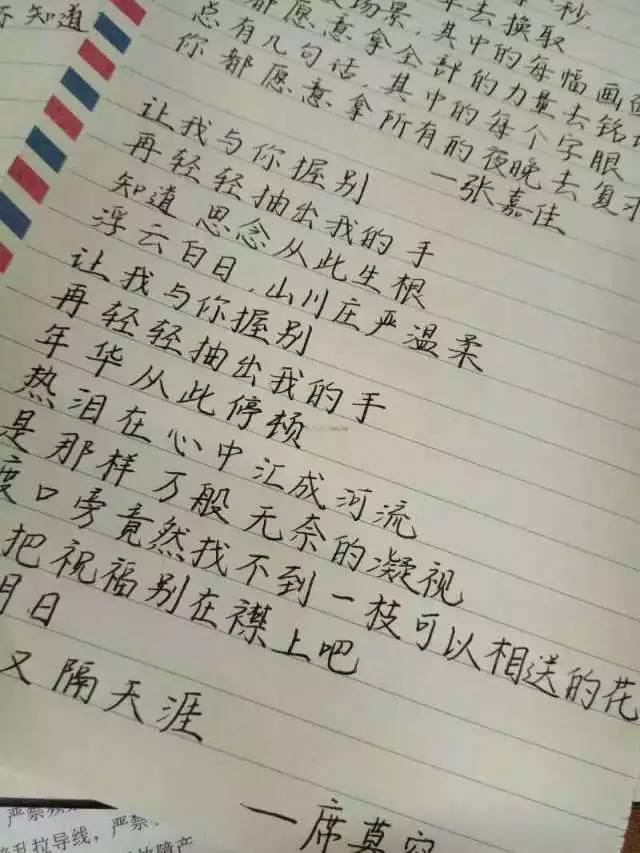 不知道
秒
去换取
场景,其中的每幅画
都愿意拿全部的力量去铭
总有几句话,其中的每个字眼
你都愿意拿所有的夜晚去复
一张嘉佳
让我与你握别
再轻轻抽出我的手
知道思念从此生根
浮云白日,山川庄严温柔
让我与你握别
再轻轻抽出我的手
年华从此停顿
热泪在心中汇成河流
是那样万般无奈的凝视
渡口旁竟然找不到一枝可以相送的花
把祝福别在襟上吧
月日
又隔天涯
一席慕容
严禁
乱拉导线,严禁